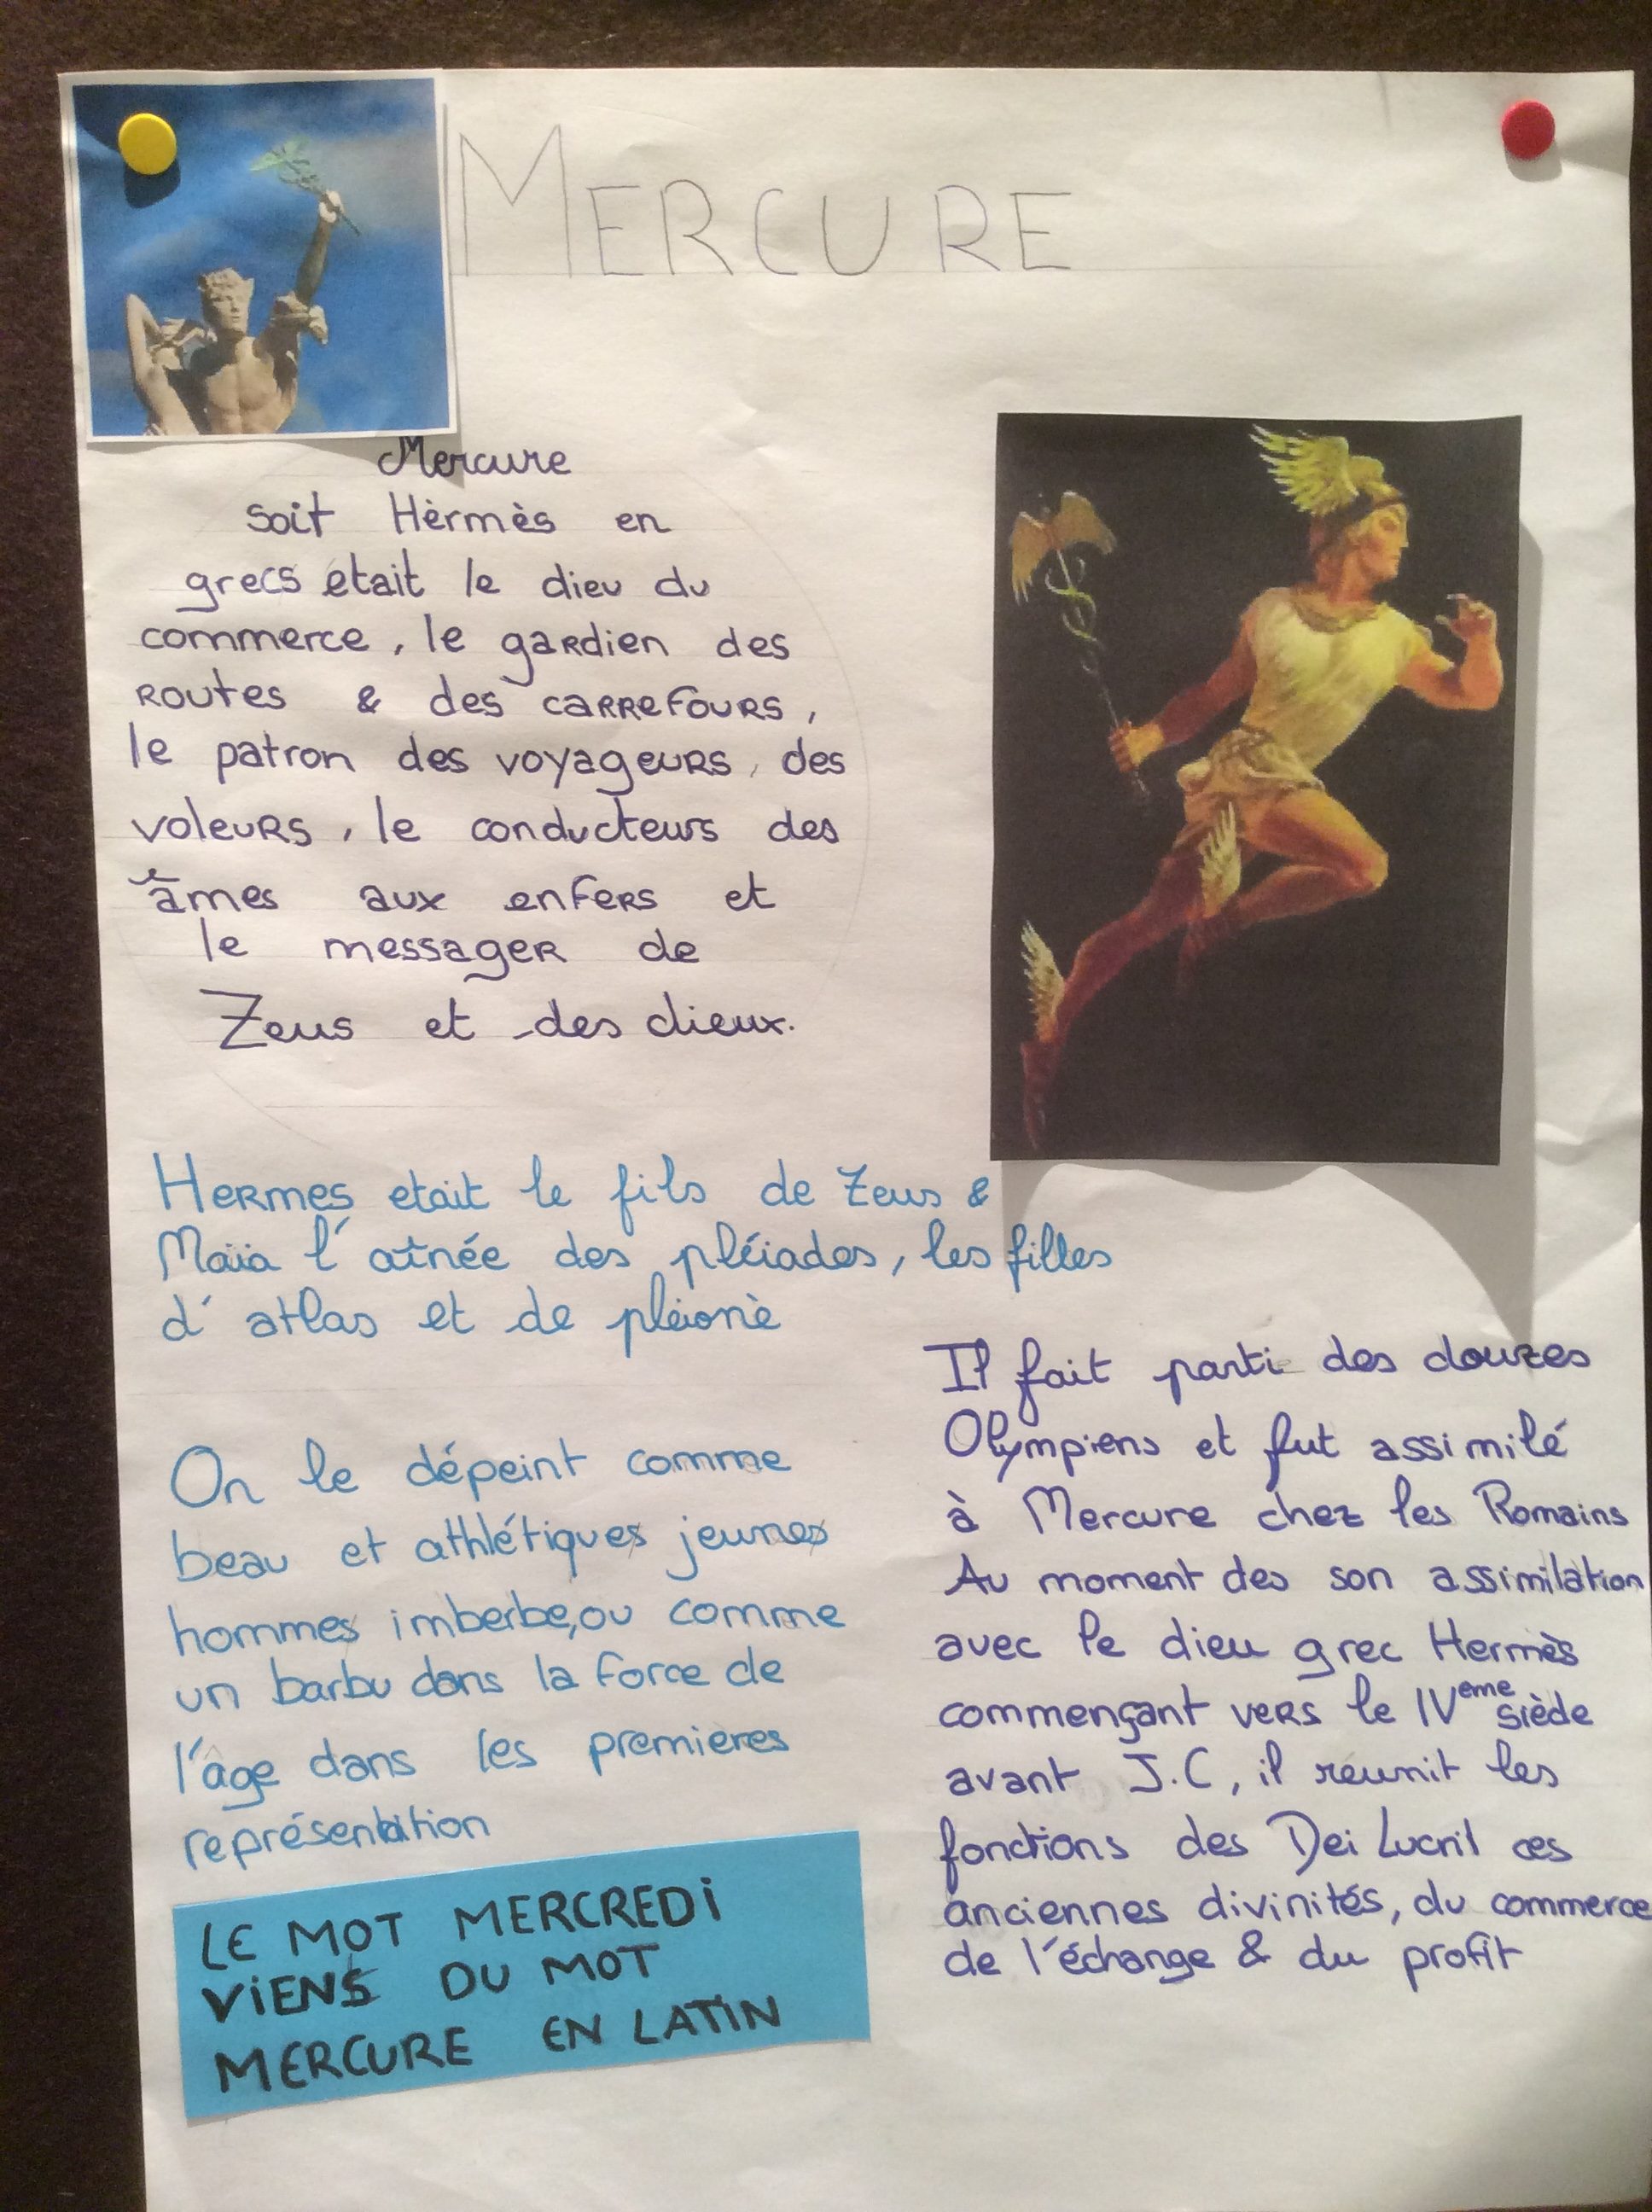 MERCURE
Mercure
soit Hèrmès en
grecs etait le dieu du
commerce, le gardien des
routes & des carrefours,
le patron des voyageurs, des
voleurs, le conducteurs des
âmes aux enfers et
le messager de
Zeus et des dieux.
Hermes etait le fils de Zeus &
Maïa l'aînée des pléiades, les filles
d'atlas et de pleionè
On le dépeint comme
beau et athlétiques jeunes
hommes imberbe, ou comme
un barbu dans la force de
l'âge dans les premieres
représentation
LE MOT MERCREDi
ViENS DU MOT
MERCURE EN LATIN
Il fait parti des douzes
Olympiens et fut assimilé
à Mercure chez les Romains
Au moment des son assimilation
avec le dieu grec Hermès
commençant vers le IVeme siède
avant J.C, il réunit les
fonctions des Dei Lucril ces
anciennes divinités, du commerce
de l'échange & du profit